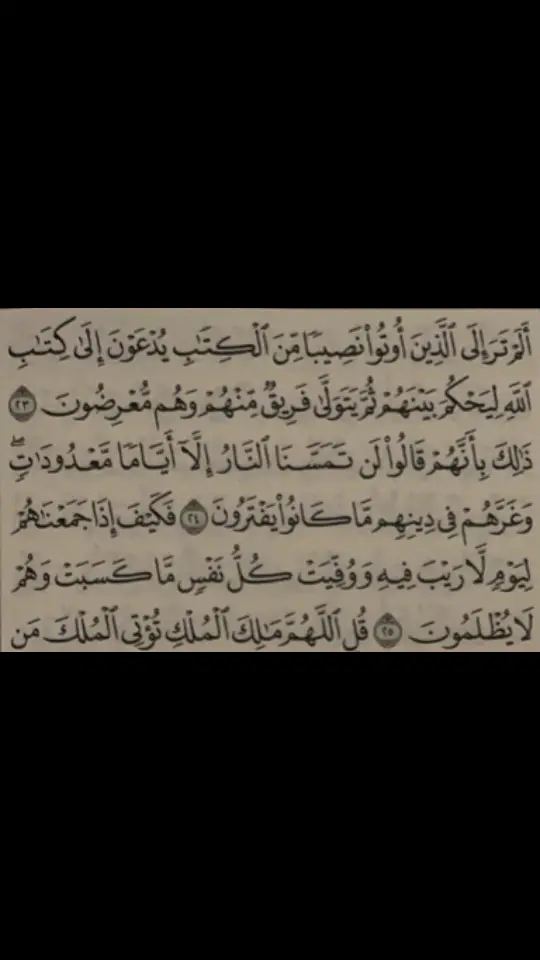 أَلَمْ تَرَ إِلَى ٱلَّذِينَ أُوتُوا۟ نَصِيبًا مِّنَ ٱلْكِتَـٰبِ يُدْعَوْنَ إِلَىٰ كِتَـٰبِ
ٱللَّهِ لِيَحْكُمَ بَيْنَهُمْ ثُمَّ يَتَوَلَّىٰ فَرِيقٌ مِّنْهُمْ وَهُم مُّعْرِضُونَ ٢٣
ذَٰلِكَ بِأَنَّهُمْ قَالُوا۟ لَن تَمَسَّنَا ٱلنَّارُ إِلَّآ أَيَّامًا مَّعْدُودَٰتٍ ۖ
وَغَرَّهُمْ فِى دِينِهِم مَّا كَانُوا۟ يَفْتَرُونَ ٢٤ فَكَيْفَ إِذَا جَمَعْنَـٰهُمْ
لِيَوْمٍ لَّا رَيْبَ فِيهِ وَوُفِّيَتْ كُلُّ نَفْسٍ مَّا كَسَبَتْ وَهُمْ
لَا يُظْلَمُونَ ٢٥ قُلِ ٱللَّهُمَّ مَـٰلِكَ ٱلْمُلْكِ تُؤْتِى ٱلْمُلْكَ مَن